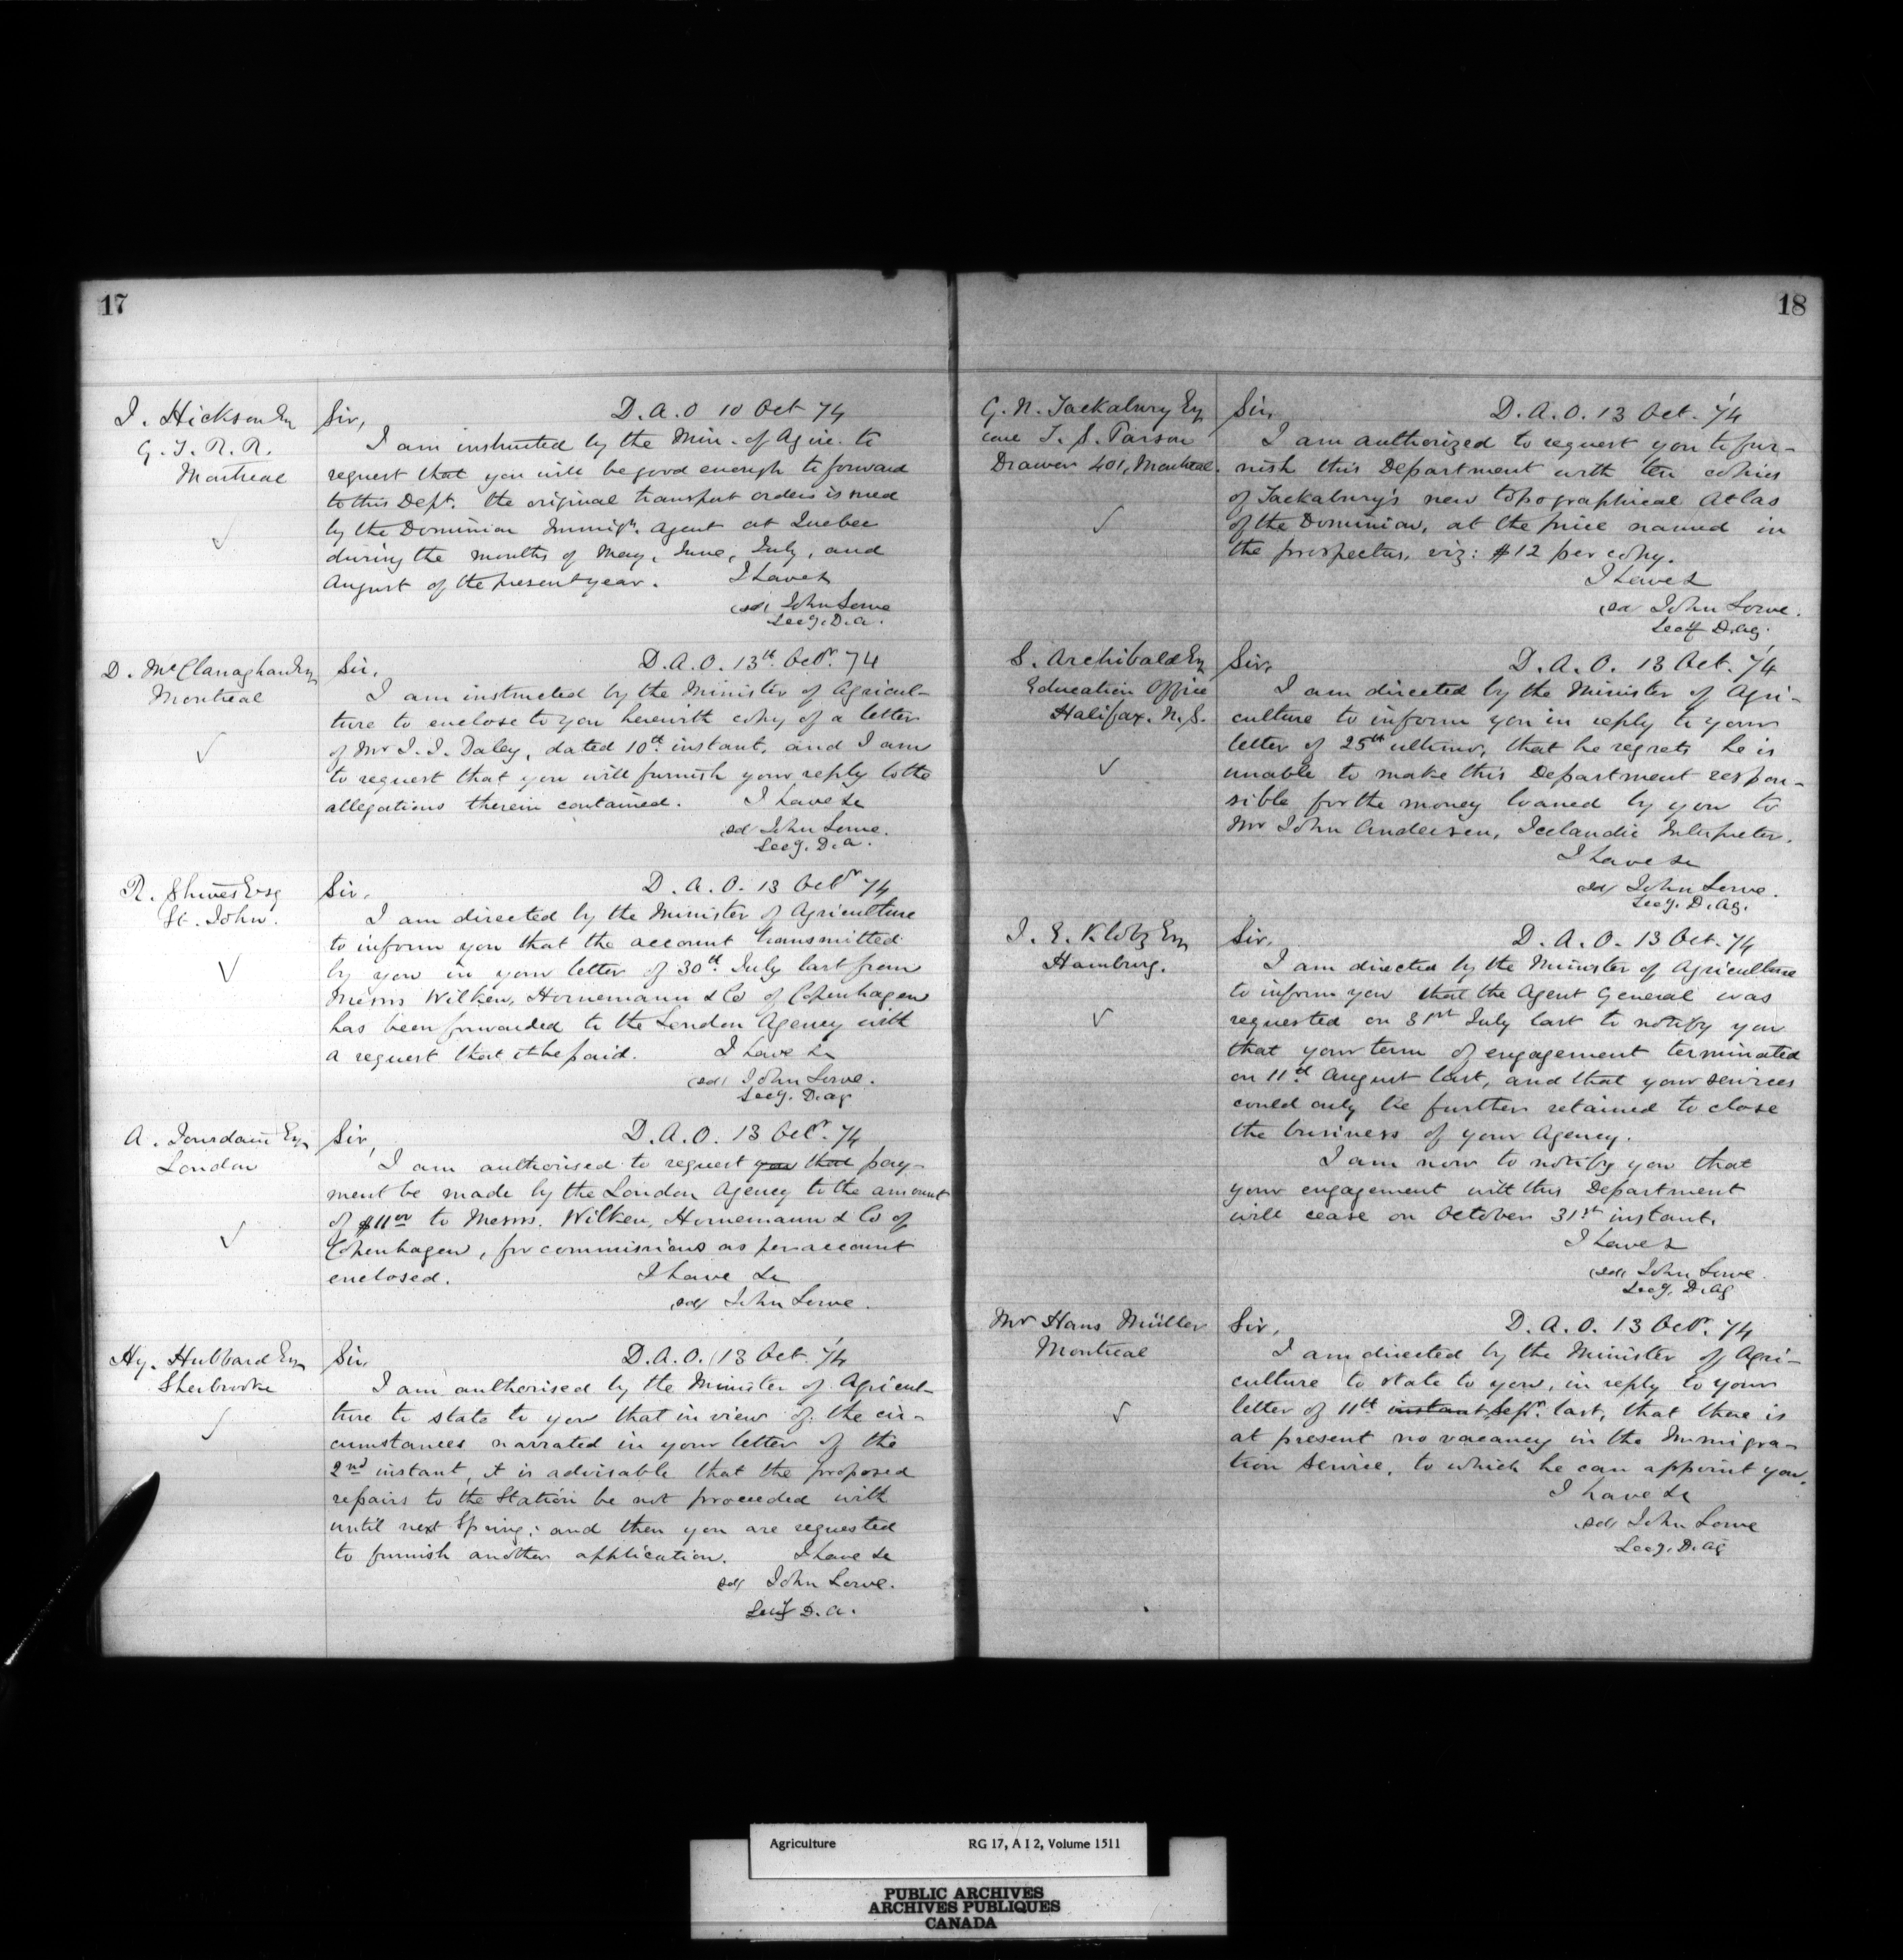 17
J. Hickson Esq
G. T. R. R.
Montreal
Sir, D. A. O 10 Oct 74
I am instructed by the Min. of Agire. to
request that you will be good enough to forward
to this Dept. the original transport orders issued
by the Dominion Immign. Agent at Quebec
during the months of May, June, July, and
August of the present year. I have &
(sd) John Lowe
Secy. D. A.
D. McClanaghan Esq
Montreal
Sir, D. A. O. 13th Octr. 74
I am instructed by the Minister of Agricul-
ture to enclose to you herewith copy of a letter
of Mr J. J. Daley, dated 10th instant, and I am
to request that you will furnish your reply to the
allegations therein contained. I have &c
sd John Lowe.
Secy. D. A.
R. Shives Esq
St. John.
Sir. D. A. O. 13 Octr 74
I am directed by the Minister of Agriculture
to inform you that the account transmitted
by you in your letter of 30th July last from
Messrs Wilken, Hornemann & Co of Copenhagen
has been forwarded to the London Agency with
a request that it be paid. I have &c
(sd) John Lowe.
Secy. D. Ag
A. Jourdain Esq
London
Sir, D. A. O. 13 Octr. 74
I am authorised to request you that pay-
ment be made by the London Agency to the amount
of $11 00 to Messrs. Wilken, Hornemann & Co of
Copenhagen, for commissions as per account
enclosed. I have &c
sd/ John Lowe.
Hy. Hubbard Esq
Sherbrooke
Sir, D. A. O. 13 Oct. 74
I am authorised by the Minister of Agricul-
ture to state to you that in view of the cir-
cumstances narrated in your letter of the
2nd instant, it is advisable that the proposed
repairs to the Station be not proceeded with
until next Spring; and then you are requested
to furnish another application. I have &c
sd/ John Lowe.
Secy D. A.
18
G. N. Tackabury Esq
care T. S. Parson
Drawer 401, Montreal.
Sir, D. A. O. 13 Oct. 74
I am authorized to request you to fur-
nish this Department with ten copies
of Tackabury's new topographical Atlas
of the Dominion, at the price named in
the prospectus, viz: $12 per copy.
I have &
(sd John Lowe.
Secy D. Ag.
S. Archibald Esq
Education Office
Halifax. N. S.
Sir, D. A. O. 13 Oct. 74
I am directed by the Minister of Agri-
culture to inform you in reply to your
letter of 25th ultimo, that he regrets he is
unable to make this Department respon-
sible for the money loaned by you to
Mr John Andersen, Icelandic Interpreter.
I have &c
sd/ John Lowe.
Secy. D. Ag.
J. E. Klotz Esq
Hamburg.
Sir, D. A. O. 13 Oct. 74
I am directed by the Minister of Agriculture
to inform you that the Agent General was
requested on 31st July last to notify you
that your term of engagement terminated
on 11th August last, and that your services
could only be further retained to close
the business of your Agency.
I am now to notify you that
your engagement with this Department
will cease on October 31st instant.
I have &
(sd) John Lowe.
Secy. D. Ag
Mr Hans Müller
Montreal
Sir, D. A. O. 13 Octr. 74
I am directed by the Minister of Agri-
culture to state to you, in reply to your
letter of 11th instant Septr. last, that there is
at present no vacancy in the Immigra-
tion Service, to which he can appoint you.
I have &c
sd/ John Lowe
Secy. D. Ag
Agriculture RG 17, A I 2, Volume 1511
PUBLIC ARCHIVES
ARCHIVES PUBLIQUES
CANADA